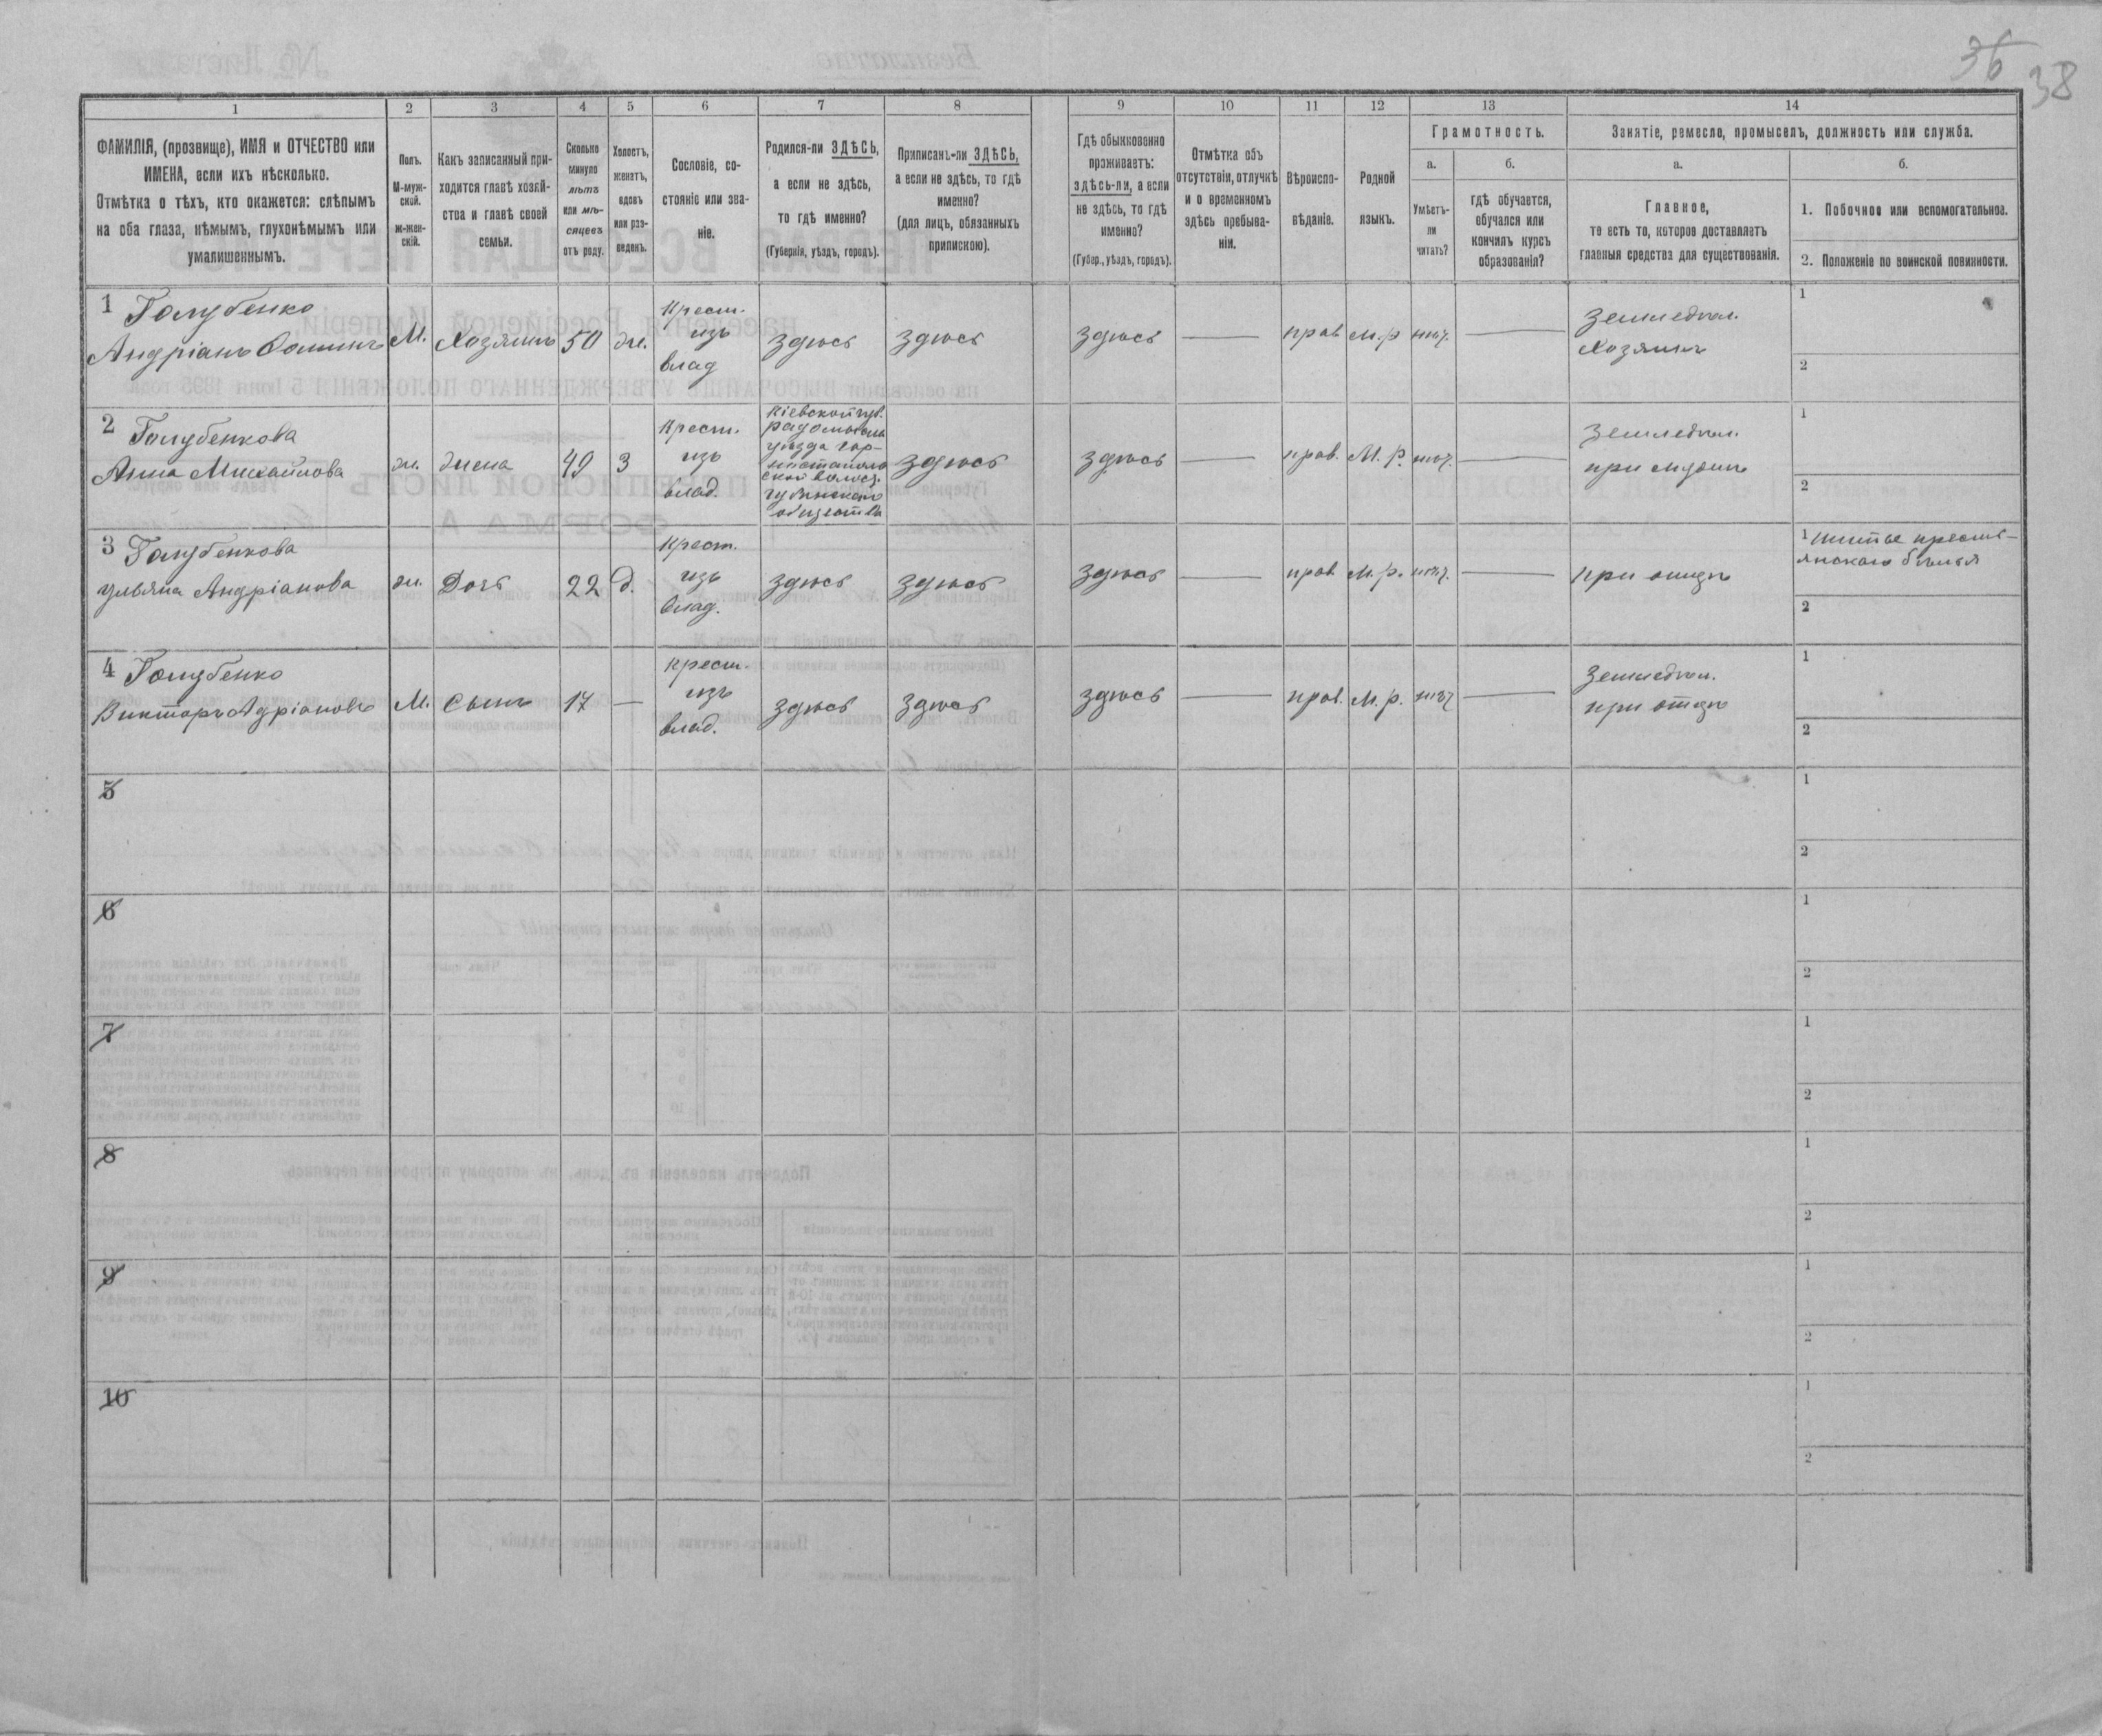 36
38
1 2 3 4 5 6 7 8 9 10 11 12 13 14
ФАМИЛІЯ, (прозвище), ИМЯ и ОТЧЕСТВО или
ИМЕНА, если ихъ нѣсколько.
Отмѣтка о тѣхъ, кто окажется: слѣпымъ
на оба глаза, нѣмымъ, глухонѣмымъ или
умалишеннымъ.
Полъ.
М-муж-
ской.
Ж-жен-
скій.
Какъ записанный при-
ходится главѣ хозяй-
ства и главѣ своей
семьи.
Сколько
минуло
лѣтъ
или мѣ-
сяцевъ
отъ роду.
Холостъ,
женатъ,
вдовъ
или раз-
веденъ.
Сословіе, со-
стояніе или зва-
ніе.
Родился-ли ЗДѢСЬ,
а если не здѣсь,
то гдѣ именно?
(Губернія, уѣздъ, городъ).
Приписанъ-ли ЗДѢСЬ,
а если не здѣсь, то гдѣ
именно?
(для лицъ, обязанныхъ
припискою).
Гдѣ обыкновенно
проживаетъ:
здѣсь-ли, а если
не здѣсь, то гдѣ
именно?
(Губер., уѣздъ, городъ).
Отмѣтка объ
отсутствіи, отлучкѣ
и о временномъ
здѣсь пребыва-
ніи.
Вѣроиспо-
вѣданіе.
Родной
языкъ.
Грамотность.
а.
Умѣетъ-
ли
читать?
б.
гдѣ обучается,
обучался или
кончилъ курсъ
образованія?
Занятіе, ремесло, промыселъ, должность или служба.
а.
Главное,
то есть то, которое доставляетъ
главныя средства для существованія.
б.
1. Побочное или вспомогательное.
2. Положеніе по воинской повинности.
1 Голубенко
Андріанъ
М.
Хозяинъ
50
ж.
Крест.
изъ
влад
здѣсь
здѣсь
здѣсь
—
прав
М.р
нѣт.
—
Земледѣл.
Хозяинъ
1
2
2 Голубенкова
Анна Михайлова
ж.
жена
49
З
Крест.
изъ
влад.
Кіевской губ.
уѣзда Гор-
ностайполь
ской волос.
общества
здѣсь
здѣсь
—
прав.
М. р.
нѣт.
—
Земледѣл.
при мужѣ
1
2
3 Голубенкова
Ульяна Андріанова
ж.
Дочь
22
д.
Крест.
изъ
влад.
здѣсь
здѣсь
здѣсь
—
прав
М. р.
нѣт.
—
при отцѣ
1 Шитье кресть-
янскаго бѣлья
2
4 Голубенко
Викторъ Адріановъ
М.
Сынъ
17
—
Крест.
изъ
влад.
здѣсь
здѣсь
здѣсь
—
прав.
М. р.
нѣт
—
Земледѣл.
при отцѣ
1
2
5
1
2
6
1
2
7
1
2
8
1
2
9
1
2
10
1
2